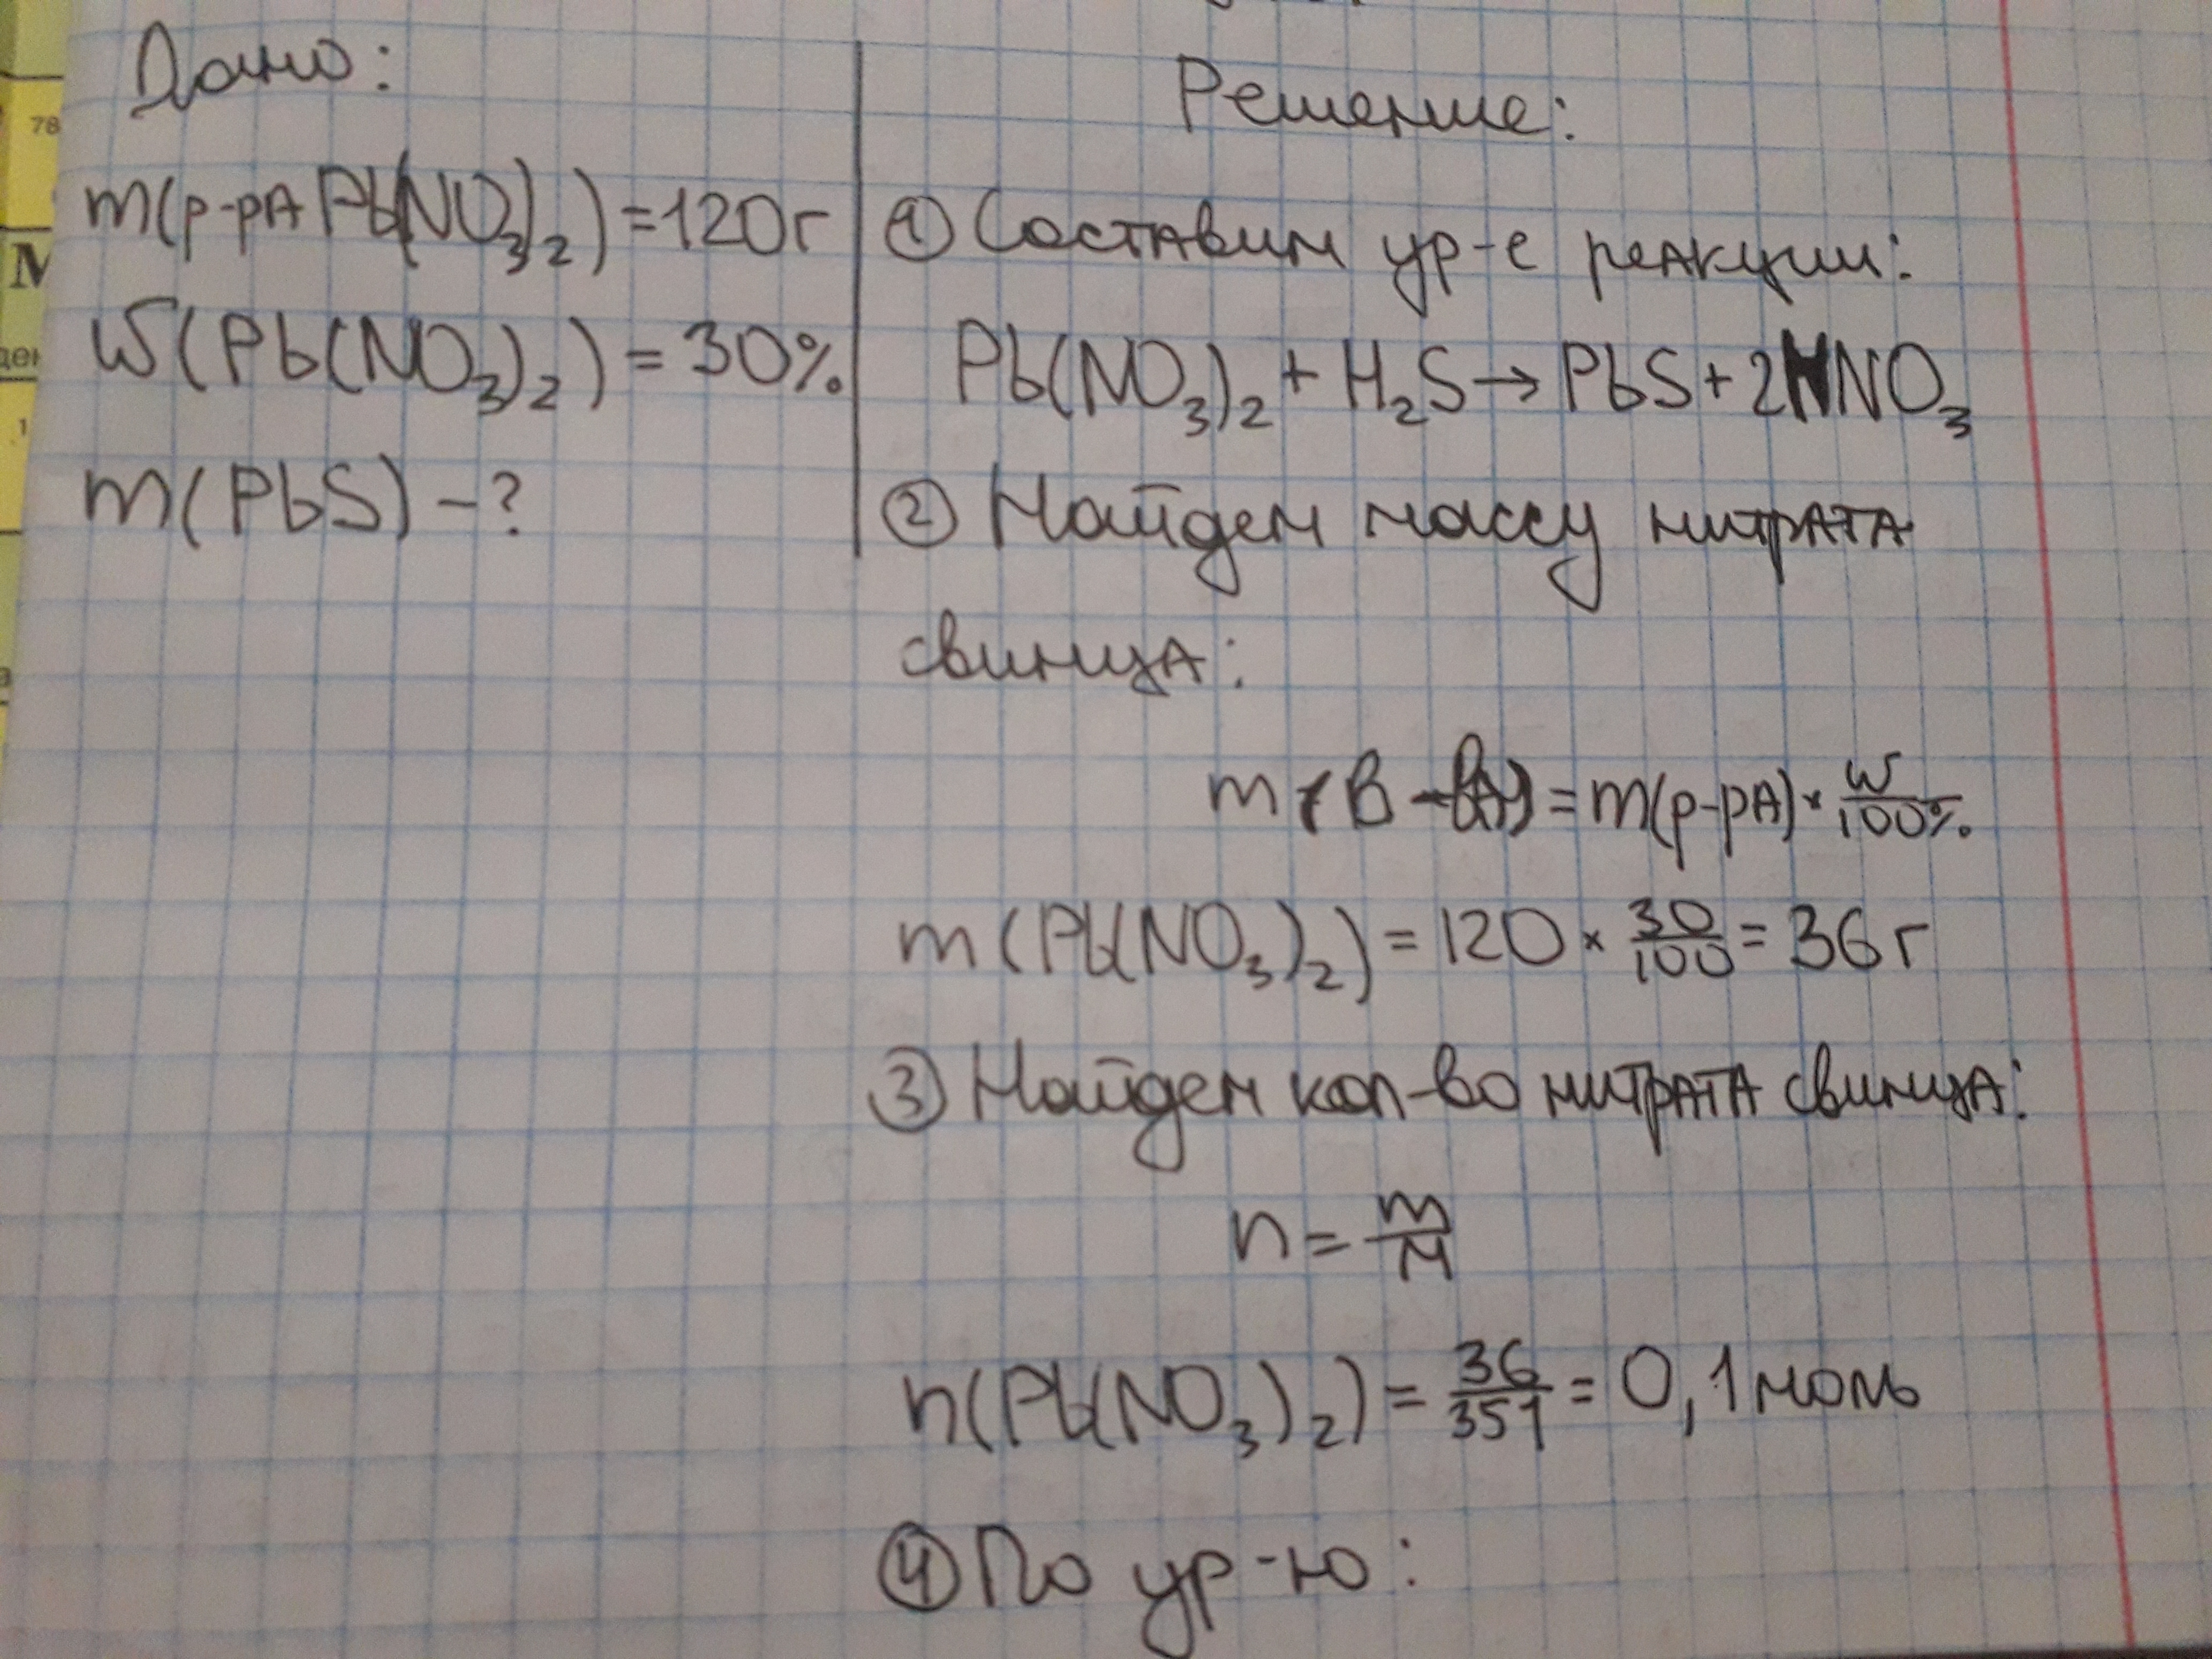 Дано:
m(р-ра Pb(NO₃)₂)=120г
w(Pb(NO₃)₂)=30%
m(PbS)-?
Решение:
① Составим ур-е реакции:
Pb(NO₃)₂+H₂S→PbS+2HNO₃
② Найдем массу нитрата
свинца:
m(в-ва)=m(р-ра)×w/100%
m(Pb(NO₃)₂)=120×30/100=36г
③ Найдем кол-во нитрата свинца:
n=m/M
n(Pb(NO₃)₂)=36/351=0,1моль
④ По ур-ю:
78
М
ден
1